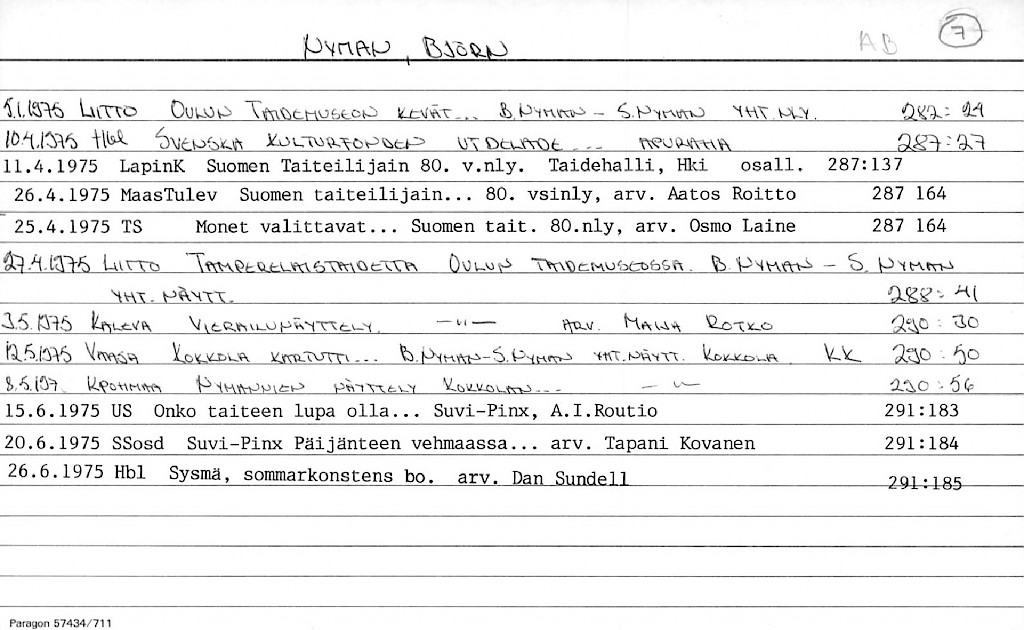 NYMAN, BJÖRN AB 7
5.1.1975 LIITTO OULUN TAIDEMUSEON KEVÄT... B.NYMAN - S.NYMAN YHT.NLY. 282:24
10.4.1975 Hbl SVENSKA KULTURFONDEN UTDELADE... APURAHA 287:27
11.4.1975 LapinK Suomen Taiteilijain 80. v.nly. Taidehalli, Hki osall. 287:137
26.4.1975 MaasTulev Suomen taiteilijain... 80. vsinly, arv. Aatos Roitto 287 164
25.4.1975 TS Monet valittavat... Suomen tait. 80.nly, arv. Osmo Laine 287 164
27.4.1975 LIITTO TAMPERELAISTAIDETTA OULUN TAIDEMUSEOSSA. B.NYMAN - S. NYMAN
YHT. NÄYTT. 288:41
3.5.1975 KALEVA VIERAILUNÄYTTELY. -"- ARV. MAIJA ROTKO 290:30
12.5.1975 VAASA KOKKOLA KARTUTTI... B.NYMAN-S.NYMAN YHT.NÄYTT. KOKKOLA. KK 290:50
8.5.197. KPOHMAA NYMANNIEN NÄYTTELY KOKKOLAN... -"- 290:56
15.6.1975 US Onko taiteen lupa olla... Suvi-Pinx, A.I.Routio 291:183
20.6.1975 SSosd Suvi-Pinx Päijänteen vehmaassa... arv. Tapani Kovanen 291:184
26.6.1975 Hbl Sysmä, sommarkonstens bo. arv. Dan Sundell 291:185
Paragon 57434/711